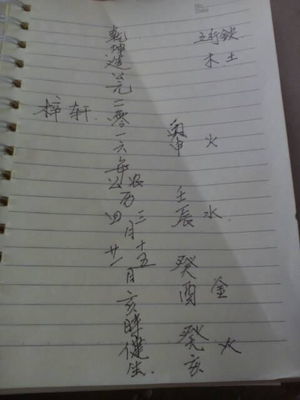 五行缺
木土
丙申 火
壬辰 水
癸酉 金
癸亥 火
乾坤造公元二零一六年
农历三月十五
公四月廿一日亥时健生
梓轩